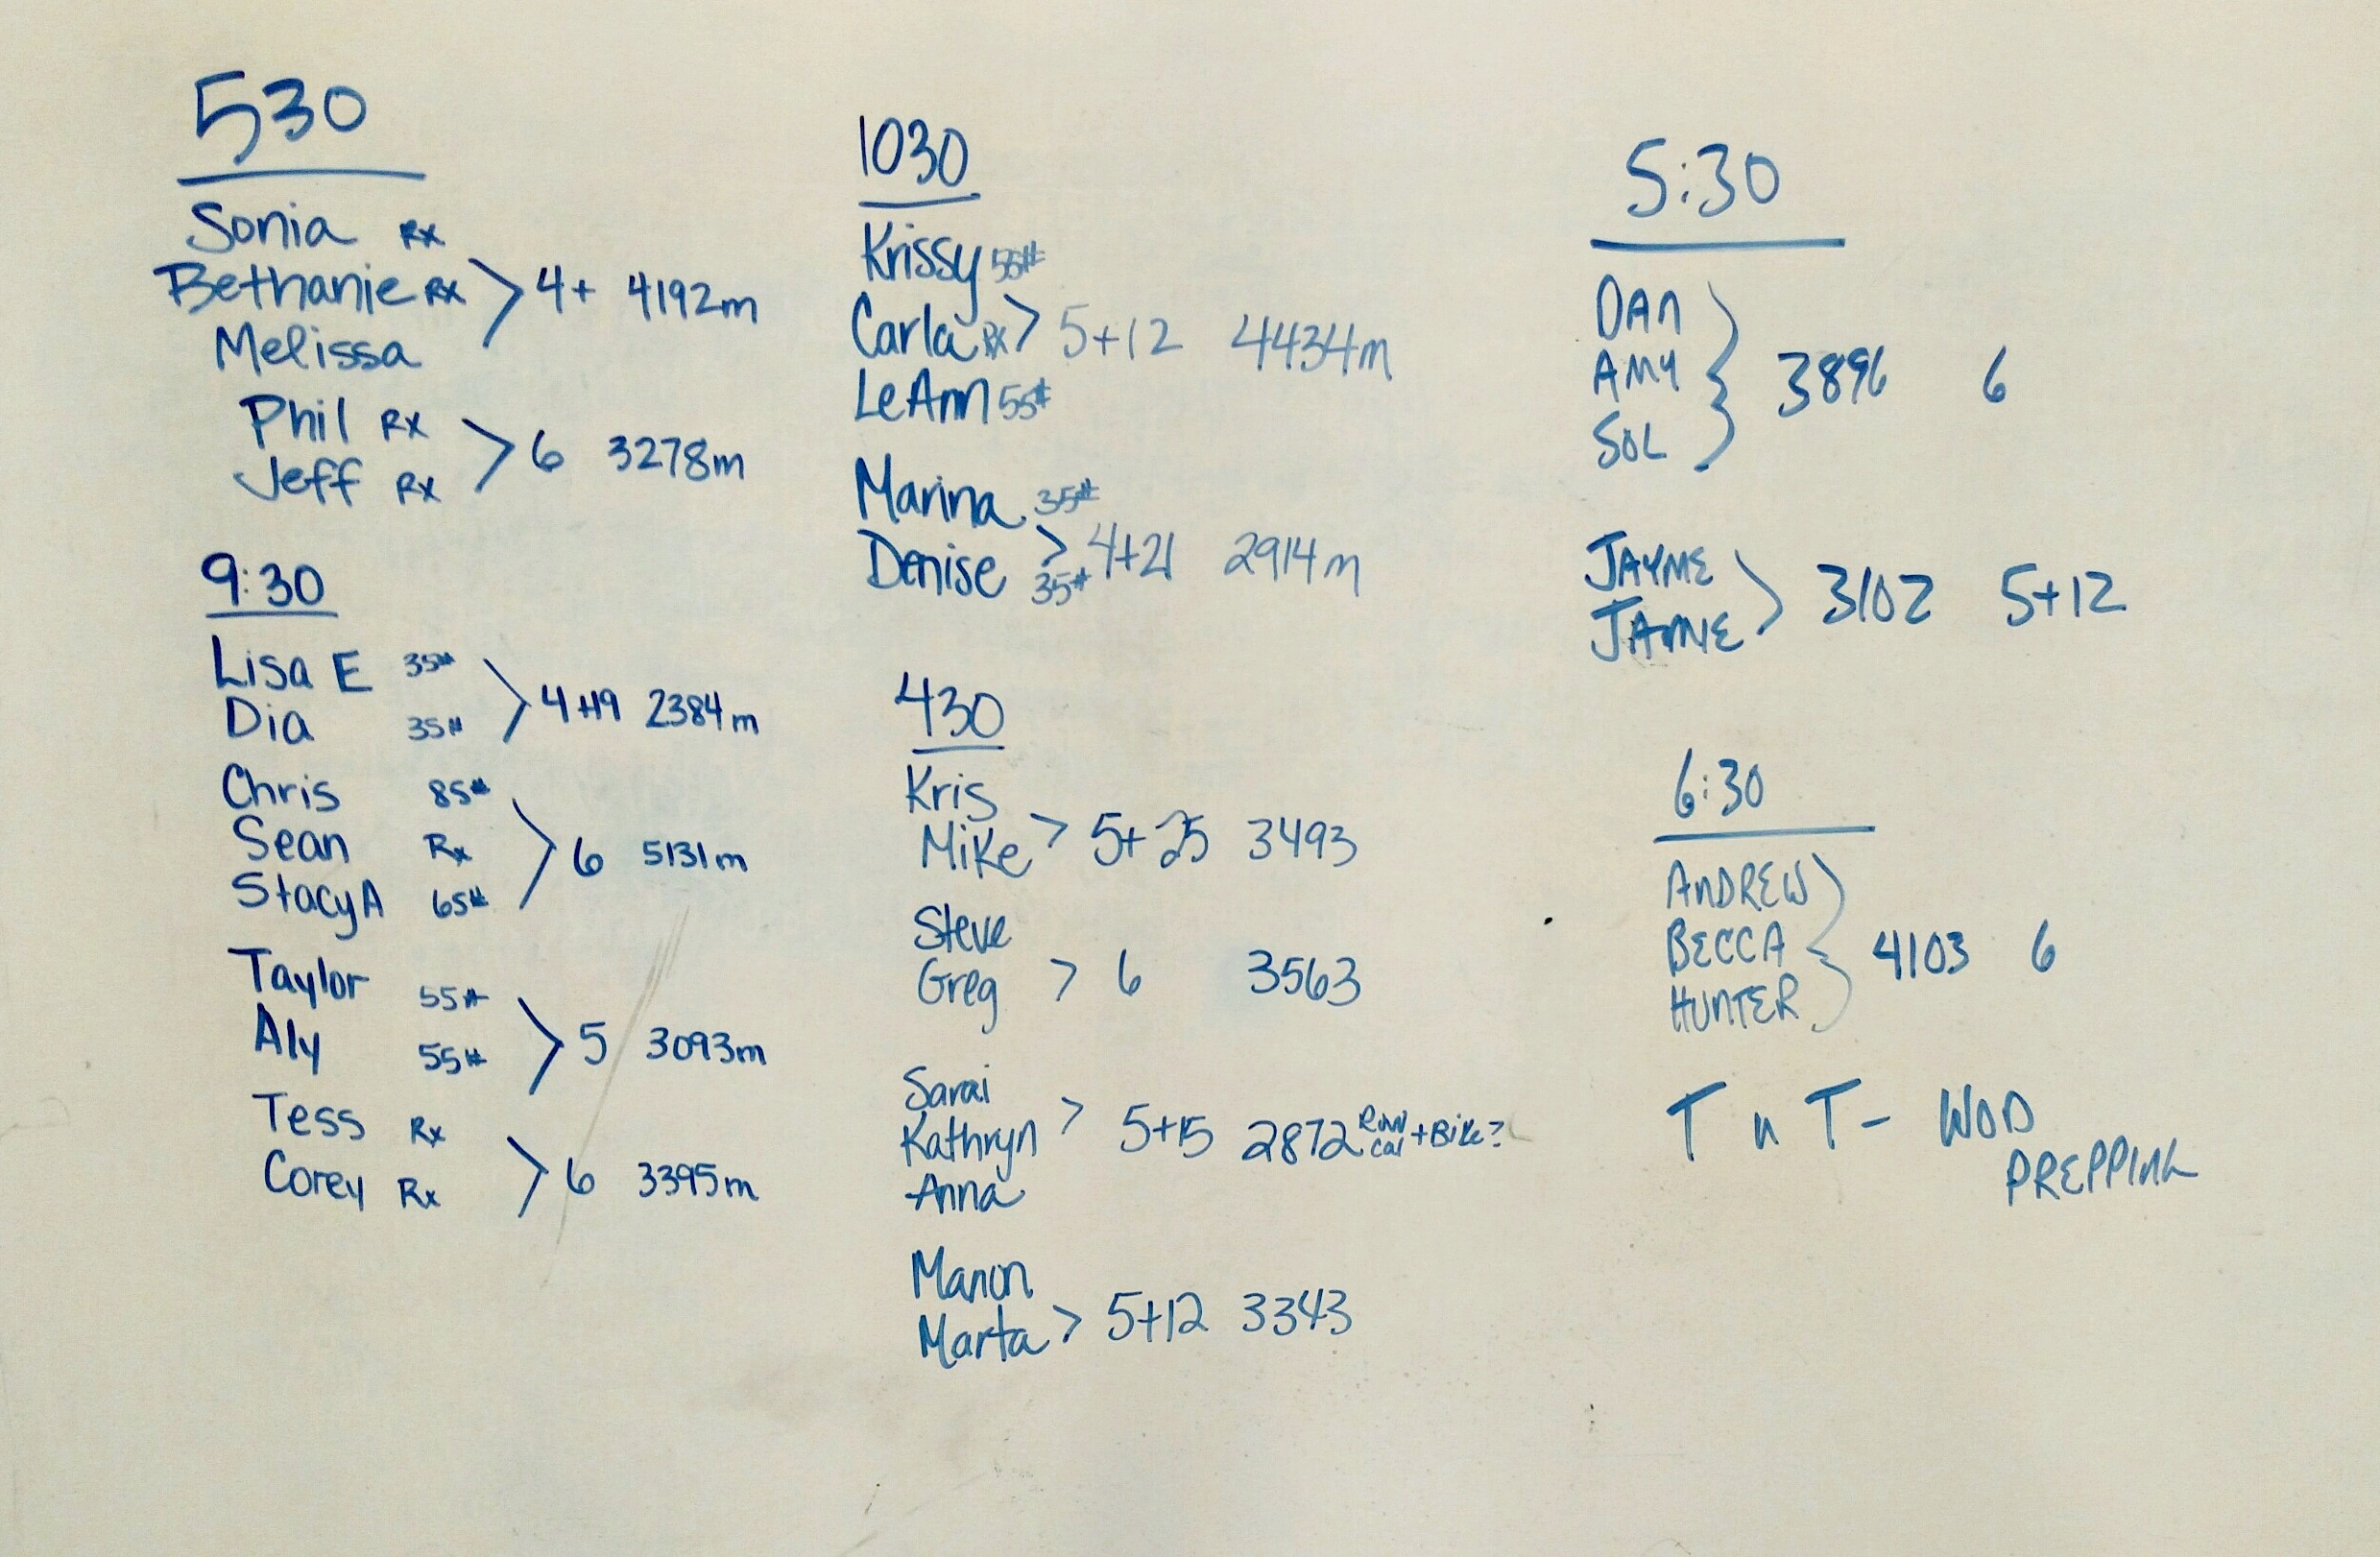 530
Sonia Rx
Bethanie Rx > 4+ 4192m
Melissa
Phil Rx
Jeff Rx > 6 3278m
9:30
Lisa E 35#
Dia 35# > 4+19 2384m
Chris 85#
Sean Rx > 6 5131m
Stacy A 65#
Taylor 55#
Aly 55# > 5 3093m
Tess Rx
Corey Rx > 6 3395m
1030
Krissy 55#
Carla Rx > 5+12 4434m
LeAnn 55#
Marina 35#
Denise 35# > 4+21 2914m
430
Kris
Mike > 5+25 3493
Steve
Greg > 6 3563
Sarai
Kathryn > 5+15 2872 Row Cal + Bike?
Anna
Manon
Marta > 5+12 3343
5:30
DAN
AMY } 3896 6
SOL
JAYME
JAMIE > 3102 5+12
6:30
ANDREW
BECCA } 4103 6
HUNTER
T n T - WOD
PREPPING